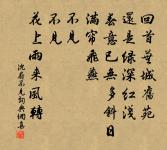 回首蕪城舊苑
還是綠深紅淺
春意已無多斜日
滿帘飛燕
不見
不見
花上雨來風轉
沈蔚不見